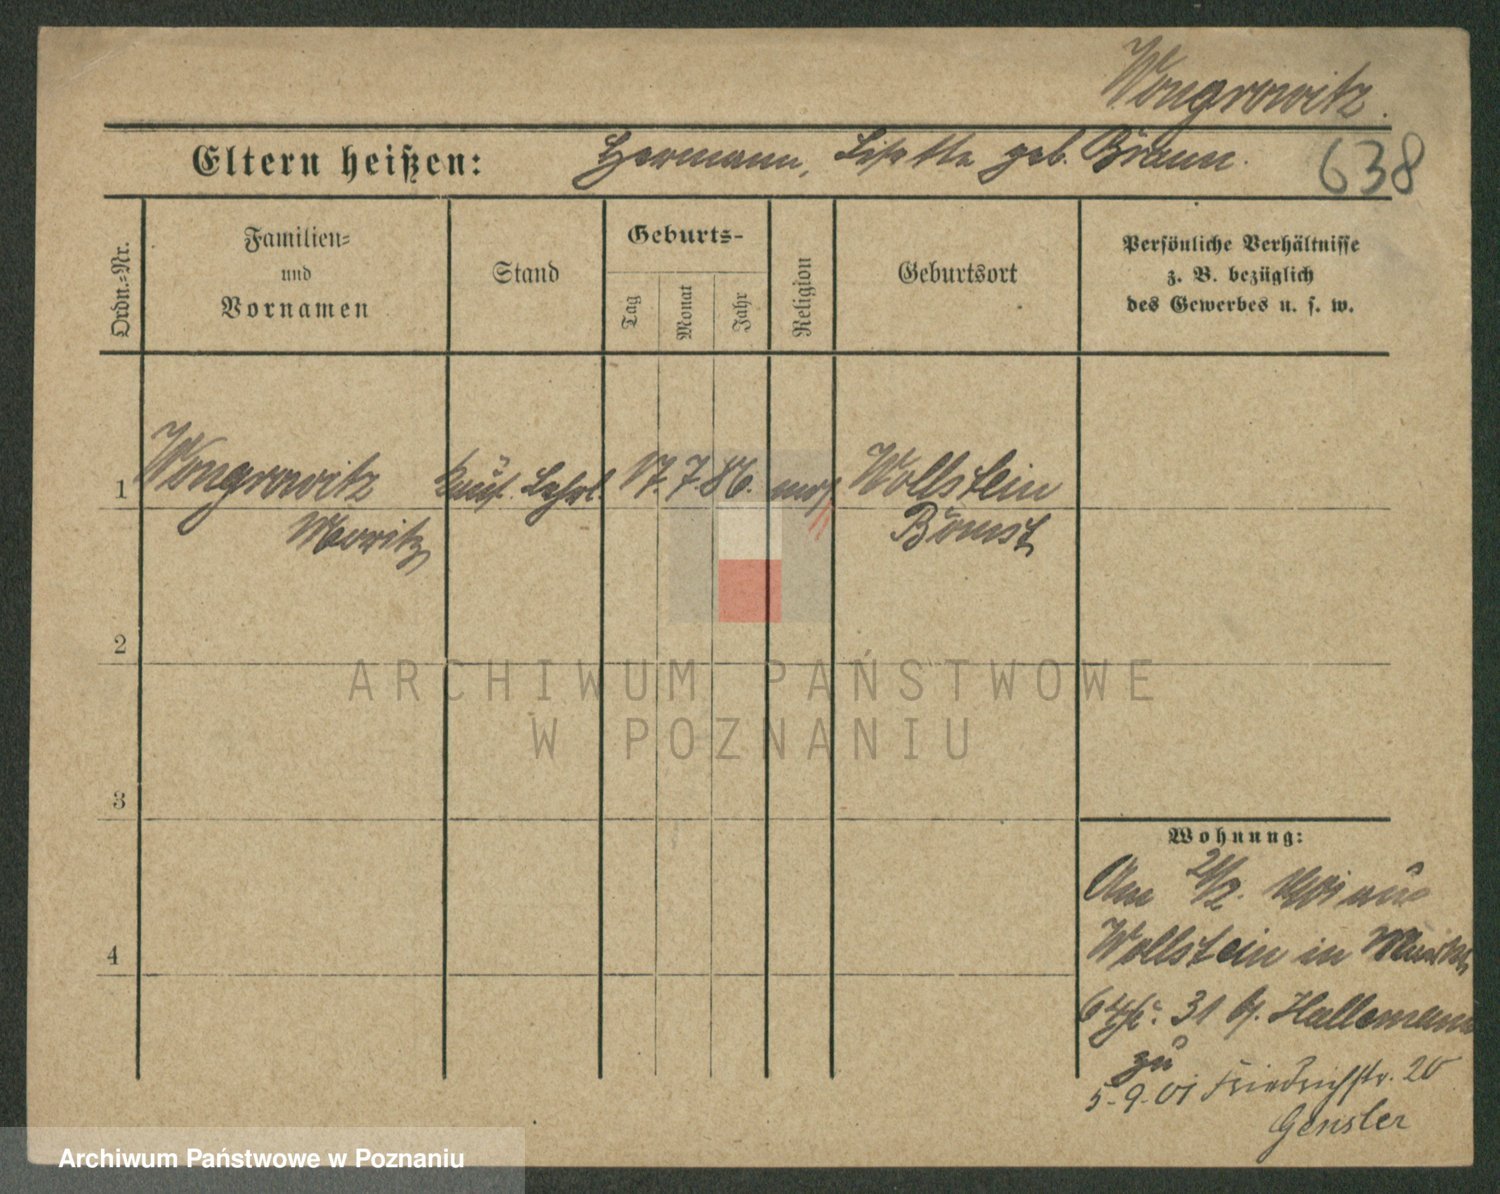 Wongrowitz.
Eltern heißen: Hermann, Lisette geb. Braun.
638
Ordn.-Nr.
Familien-
und
Vornamen
Stand
Geburts-
Tag
Monat
Jahr
Religion
Geburtsort
Persönliche Verhältnisse
z. B. bezüglich
des Gewerbes u. s. w.
1 Wongrowitz kauf. Lehrl. 17. 7. 86. mos Wollstein
Moritz Bomst
2
3
4
Wohnung:
Am 21/2. 1901 aus
Wollstein in
31 b. Hallemann
zu
5-9.01 Friedrichstr. 20
Gensler
ARCHIWUM PAŃSTWOWE
W POZNANIU
Archiwum Państwowe w Poznaniu